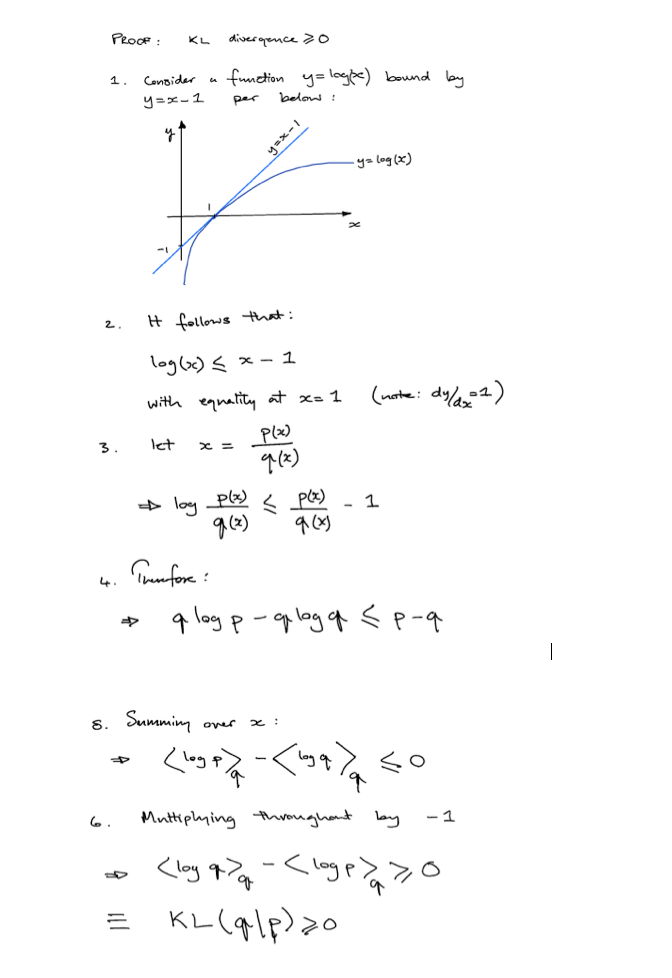 PROOF: KL divergence ≥ 0
1. Consider a function y = log(x) bound by
y = x - 1 per below:
y
y = x - 1
y = log(x)
1
x
-1
2. It follows that:
log(x) ≤ x - 1
with equality at x = 1 (note: dy/dx = 1)
3. let x = p(x)/q(x)
⇒ log p(x)/q(x) ≤ p(x)/q(x) - 1
4. Therefore:
⇒ q log p - q log q ≤ p - q
5. Summing over x:
⇒ <log p>_q - <log q>_q ≤ 0
6. Multiplying throughout by -1
⇒ <log q>_q - <log p>_q ≥ 0
≡ KL(q|p) ≥ 0